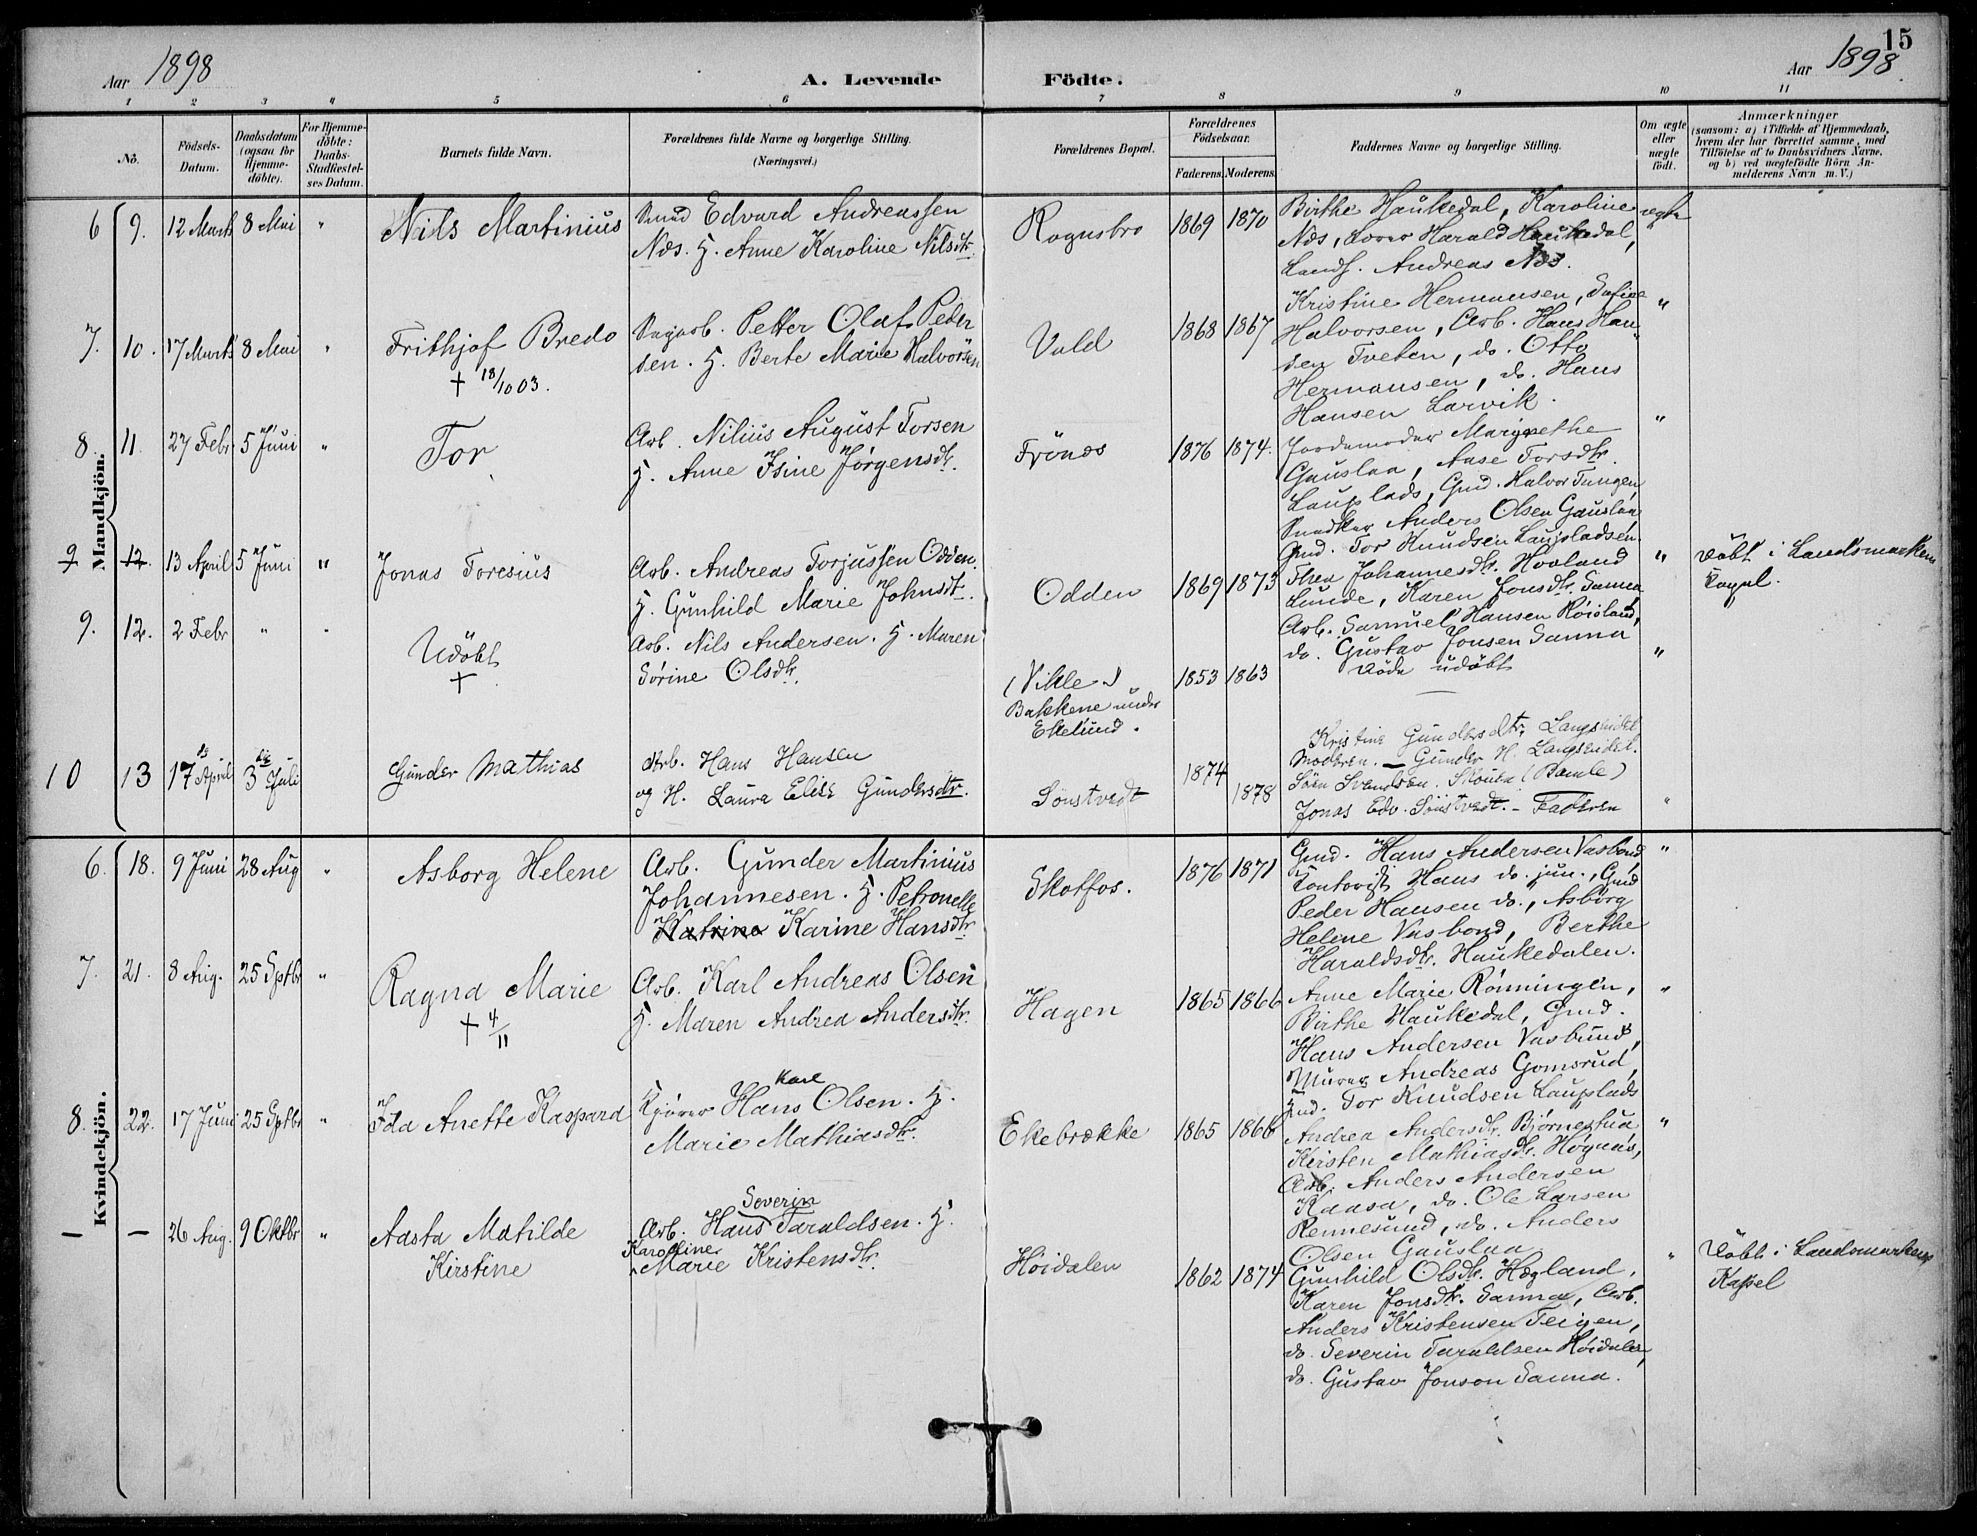 15
Aar 1898
A. Levende Födte.
Aar 1898.
1 2 3 4 5 6 7 8 9 10 11
No.
Födsels-
Datum.
Daabsdatum
(ogsaa for
Hjemme-
döbte).
For Hjemme-
döbte:
Daabs-
Stadfæstel-
ses Datum.
Barnets fulde Navn.
Forældrenes fulde Navne og borgerlige Stilling.
(Næringsvei.)
Forældrenes Bopæl.
Forældrenes
Födselsaar.
Faderens. Moderens.
Faddernes Navne og borgerlige Stilling.
Om ægte
eller
uægte
födt.
Anmærkninger
(saasom: a) i Tilfælde af Hjemmedaab,
hvem der har forrettet samme, med
Tilföielse af to Daabsvidners Navne,
og b) ved uægtefödte Börn An-
melderens Navn m. V.)
Mandkjön.
6 9. 12 Marts 8 Mai "
Nils Martinius
Edvard Andreassen
Næs. H. Anne Karoline Nilsdtr.
Rognsbro
1869 1870
Birthe Haukedal, Karoline
Næs, Harald Haukedal,
Landh. Andreas Næs.
ægte
7. 10. 17 Marts 8 Mai "
Frithjof Bredo
+ 18/10 03.
Petter Olaf Peder
sen. H. Berte Marie Halvorsen
Vald
1868 1867
Kristine Hermansen,
Halvorsen, Arb. Hans Han
sen Tveten, do. Otto
Hermansen, do. Hans
Hansen Larvik.
"
8 11. 27 Febr 5 Juni "
Tor
Arb. Nilius August Torsen
H. Anne Isine Jørgensdtr.
Frönæs
1876 1874.
Jordemoder Margrethe
Gauslaa, Aase Torsdtr.
Lauplads, Gmd. Halvor Tangen,
Anders Olsen Gauslaa
Gmd. Tor Knudsen Laupladsen.
"
9 12. 13 April 5 Juni "
Jonas Toresius
Arb. Andreas Torjussen Odden.
H. Gunhild Marie Johnsdtr.
Odden
1869 1873
Thea Johannesdtr. Hovland
Lunde, Karen Jonsdtr. Sanna
Arb. Samuel Hansen Röisland,
do. Gustav Jonsen Sanna
"
Döbt i Landsmarkens
Kapel.
9. 12. 2 Febr " "
Udöbt
+
Arb. Nils Andersen. H. Maren
Sörine Olsdtr.
(Vikle)
Bakkene under
Ekelund.
1853 1863
Döde udöbt
"
10 13 17de April 3die Juli
Gunder Mathias
Arb. Hans Hansen
og H. Laura Elise Gundersdtr.
Sönstvedt
1874 1878
Kristine Gundersdtr. Langsundet
Moderen. — Gunder H. Langsundet.
Sören Svendsen. Skouen (Bamle)
Jonas Edv. Sönstvedt. – Faderen
"
Kvindekjön.
6. 18. 9 Juni 28 Aug "
Asborg Helene
Arb. Gunder Martinius
Johannesen. H. Petronelle
Katrine Karine Hansdtr.
Skotfos.
1876 1871
Gmd. Hans Andersen Vasbond
Kontorist Hans do. jun., Gmd
Peder Hansen do., Asbörg
Helene Vasbond, Berthe
Haraldsdtr. Haukedalen.
"
7. 21. 8 Aug. 25 Sptbr "
Ragna Marie
+ 4/11
Arb. Karl Andreas Olsen
H. Maren Andrea Andersdtr.
Hagen
1865 1866
Anne Marie Rönningen,
Birthe Haukedal, Gmd.
Hans Andersen Vasbund,
Murer Andreas Gomsrud,
Gmd. Tor Knudsen Lauplads
"
8. 22. 17 Juni 25 Sptbr "
Ida Anette Kaspara
Karl
Kjører Hans Olsen. H.
Marie Mathiasdtr.
Ekebrække
1865 1866
Andrea Andersdtr. Bjørnestua
Kirsten Mathiasdtr. Högnæs,
Arb. Anders Andersen
Kaasa, do. Ole Larsen
Rennesund, do. Anders
Olsen Gauslaa
"
— — 26 Aug. 9 Oktbr "
Aasta Matilde
Kirstine
Severin
Arb. Hans Taraldsen. H.
Karoline
Marie Kristensdtr.
Höidalen
1862 1874
Gunhild Olsdtr. Hægland,
Karen Jonsdtr. Sanna, Arb.
Anders Kristensen Teigen,
do. Severin Taraldsen Höidalen,
do. Gustav Jonson Sanna.
"
Döbt i Landsmarkens
Kapel